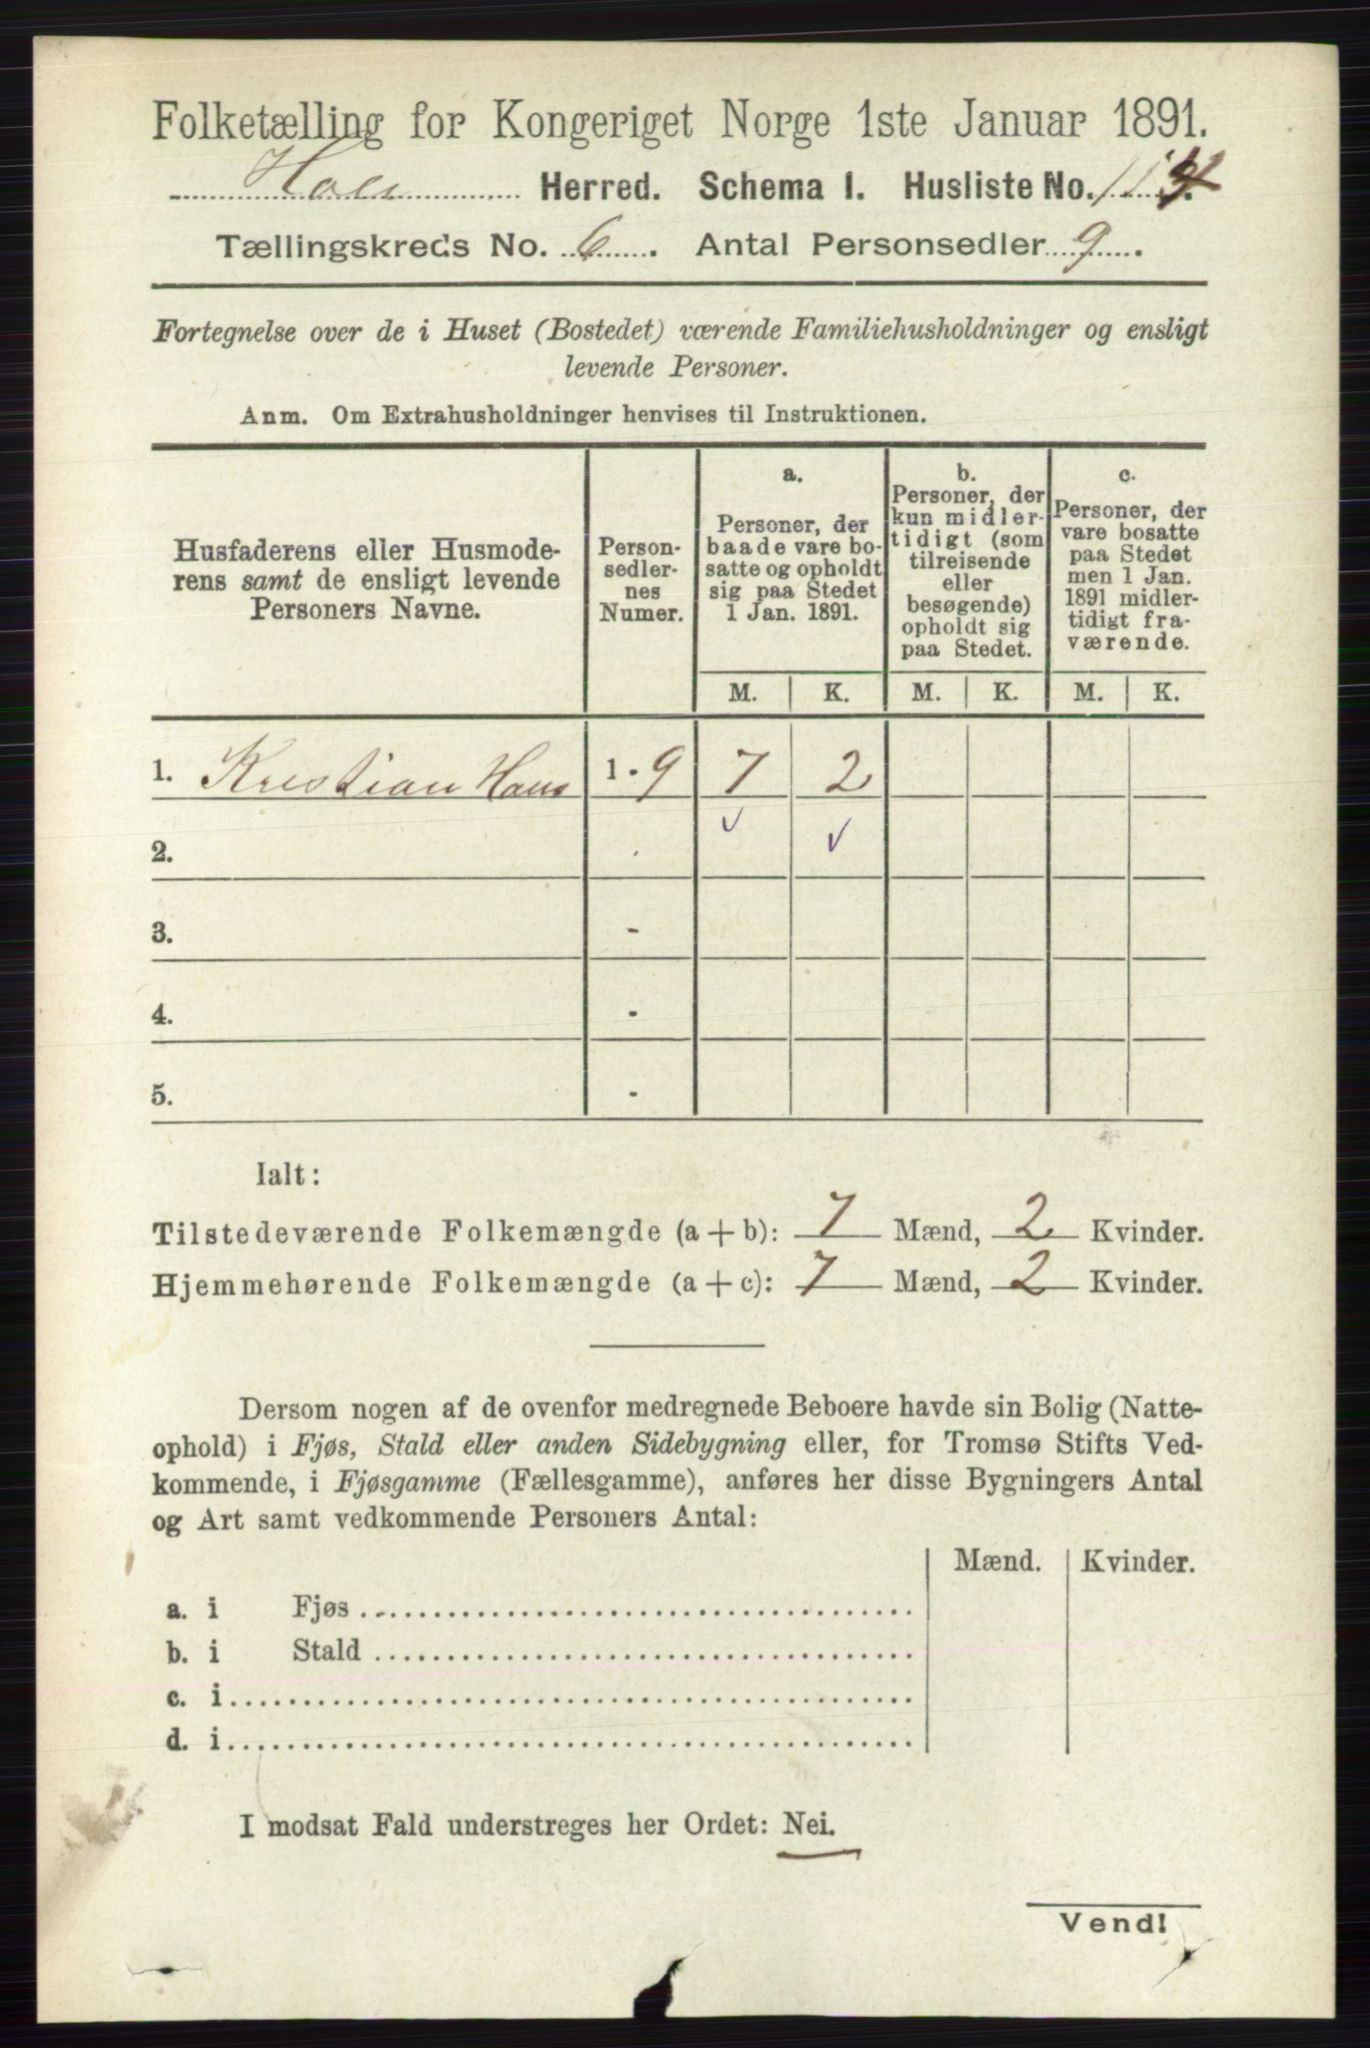 Folketælling for Kongeriget Norge 1ste Januar 1891.
Hole Herred. Schema 1. Husliste No.
Tællingskreds No. 6. Antal Personsedler 9.
Fortegnelse over de i Huset (Bostedet) værende Familiehusholdninger og ensligt
levende Personer.
Anm. Om Extrahusholdninger henvises til Instruktionen.
Husfaderens eller Husmode-
rens samt de ensligt levende
Personers Navne.
Person-
sedler-
nes
Numer.
a.
Personer, der
baade vare bo-
satte og opholdt
sig paa Stedet
1 Jan. 1891.
b.
Personer, der
kun midler-
tidigt (som
tilreisende
eller
besøgende)
opholdt sig
paa Stedet.
c.
Personer, der
vare bosatte
paa Stedet
men 1 Jan.
1891 midler-
tidigt fra-
værende.
M. K. M. K. M. K.
1. Kristian Hans 1 - 9 7 2
2.
3. -
4. -
5. -
Ialt:
Tilstedeværende Folkemængde (a + b): 7 Mænd, 2 Kvinder.
Hjemmehørende Folkemængde (a + c): 7 Mænd, 2 Kvinder.
Dersom nogen af de ovenfor medregnede Beboere havde sin Bolig (Natte-
ophold) i Fjøs, Stald eller anden Sidebygning eller, for Tromsø Stifts Ved-
kommende, i Fjøsgamme (Fællesgamme), anføres her disse Bygningers Antal
og Art samt vedkommende Personers Antal:
Mænd. Kvinder.
a. i Fjøs
b. i Stald
c. i
d. i
I modsat Fald understreges her Ordet: Nei.
Vend!